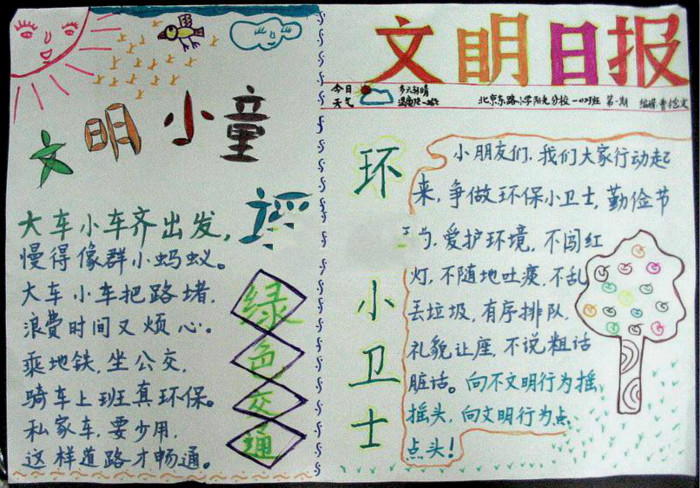 文明小童谣
大车小车齐出发,
慢得像群小蚂蚁。
大车小车把路堵,
浪费时间又烦心。
乘地铁,坐公交,
骑车上班真环保。
私家车,要少用,
这样道路才畅通。
绿色交通
文明日报
今日
天气
多云转晴
北京东路小学阳光分校一
班 第一期 编辑:曹
环小卫士
小朋友们,我们大家行动起
来,争做环保小卫士,勤俭节
约,爱护环境,不闯红
灯,不随地吐痰,不乱
丢垃圾,有序排队,
礼貌让座,不说粗话
脏话。向不文明行为摇
摇头,向文明行为点
点头!